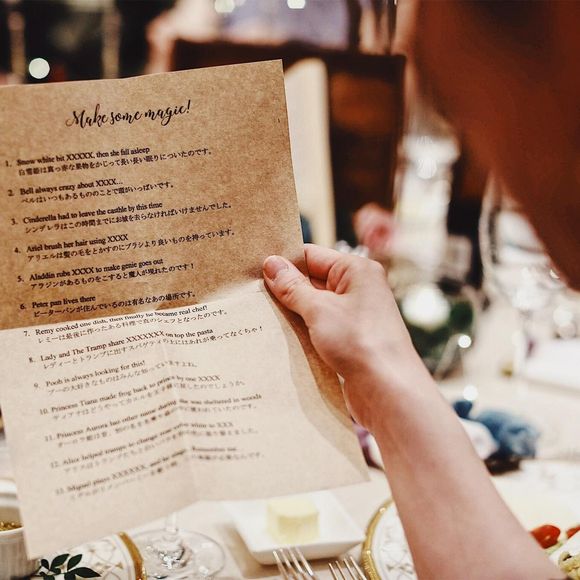 Make some magic!
1. Snow white bit XXXXX, then she fall asleep
白雪姫は真っ赤な果物をかじって長い長い眠りについたのです。
2. Bell always crazy about XXXX...
ベルはいつもあるもののことで頭がいっぱいです。
3. Cinderella had to leave the castle by this time
シンデレラはこの時間までにお城を去らなければいけませんでした。
4. Ariel brush her hair using XXXX
アリエルは髪の毛をとかすのにブラシより良いものを持っています。
5. Aladdin rubs XXXX to make genie goes out
アラジンがあるものをこすると魔人が現れたのです！
6. Peter pan lives there
ピーターパンが住んでいるのは有名なあの場所です。
7. Remy cooked one dish, then finally he became real chef!
レミーは最後に作ったある料理で真のシェフとなったのです。
8. Lady and The Tramp share XXXXXXX on top the pasta
レディーとトランプに出すスパゲティの上にはあれが乗ってなくちゃ！
9. Pooh is always looking for this!
プーの大好きなものはみんな知っていますよね。
10. Princess Tiana made frog back to prince by one XXXX
11. Princess Aurora has other name during she was sheltered in woods
12. Alice helped tramps to change rose white to XXX
13. Miguel plays XXXXXX, and he sings Remember me